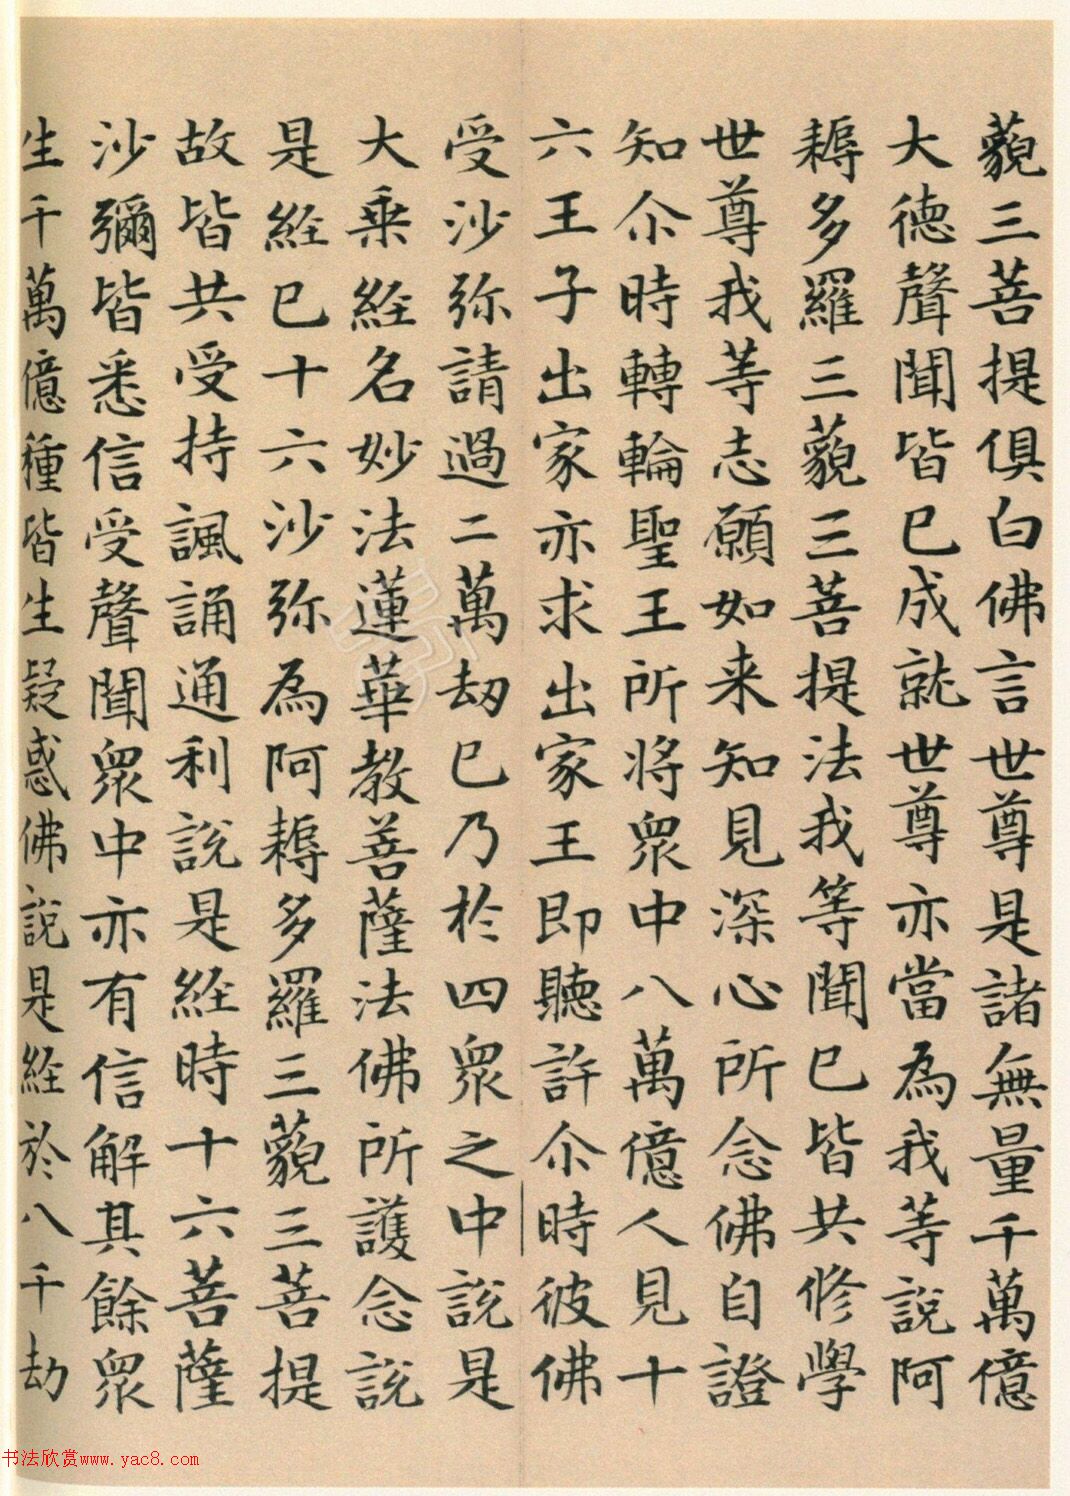 藐三菩提俱白佛言世尊是諸無量千萬億
大德聲聞皆已成就世尊亦當為我等說阿
耨多羅三藐三菩提法我等聞已皆共修學
世尊我等志願如来知見深心所念佛自證
知尒時轉輪聖王所將眾中八萬億人見十
六王子出家亦求出家王即聽許尒時彼佛
受沙弥請過二萬劫已乃於四眾之中說是
大乗經名妙法蓮華教菩薩法佛所護念說
是經已十六沙弥為阿耨多羅三藐三菩提
故皆共受持諷誦通利說是經時十六菩薩
沙彌皆悉信受聲聞眾中亦有信解其餘眾
生千萬億種皆生疑惑佛說是經於八千劫
书法欣赏www.yac8.com